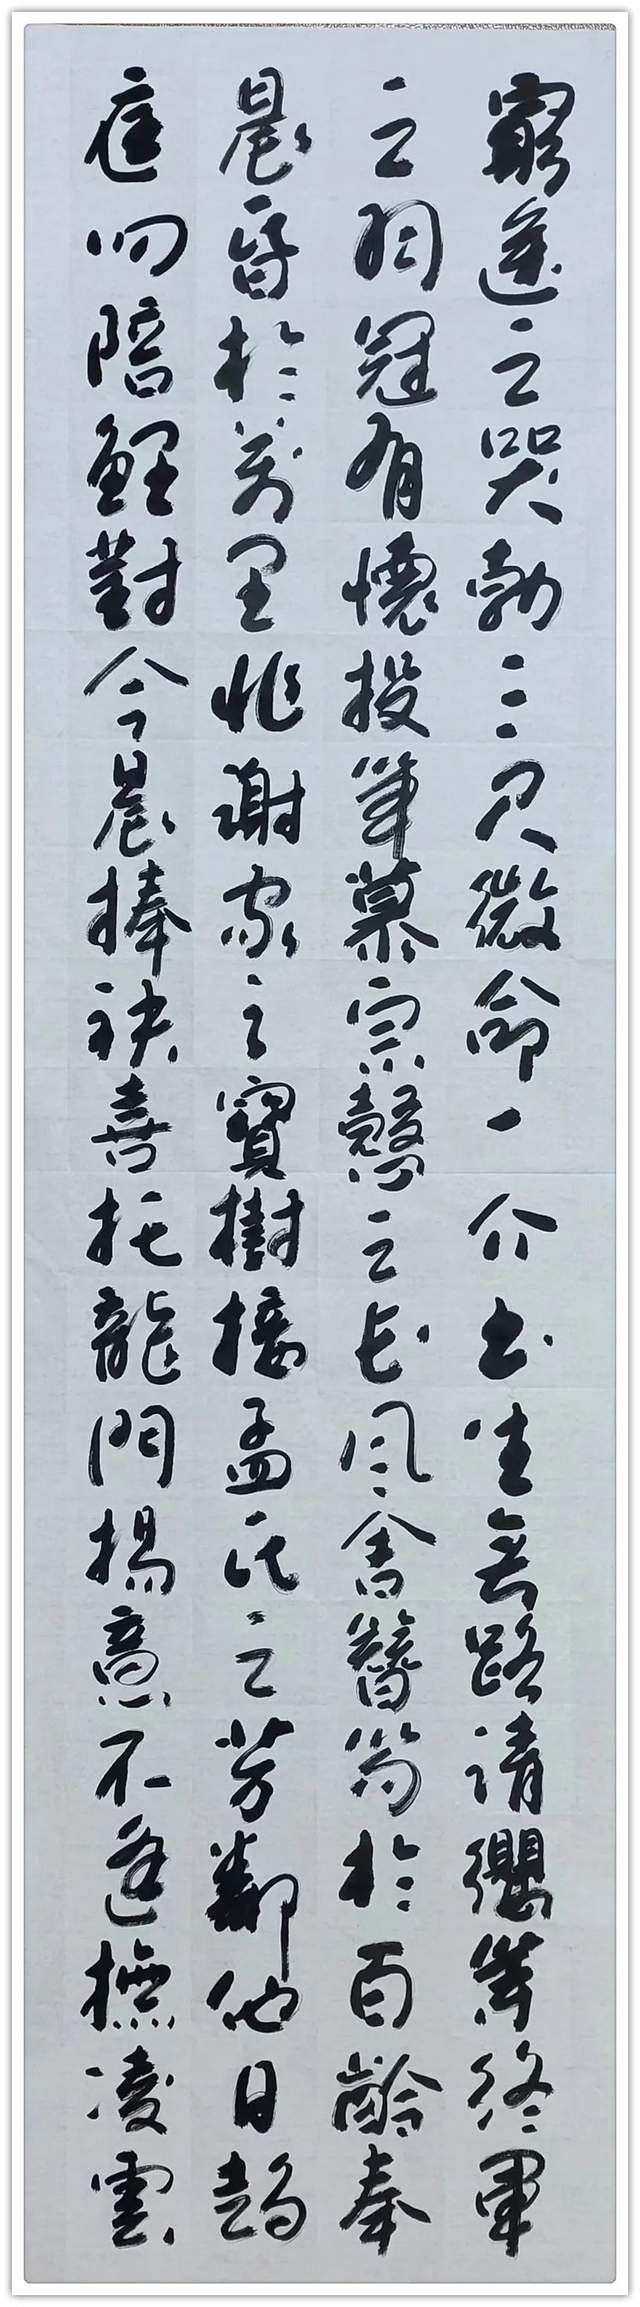 窮途之哭勃三尺微命一介書生無路請纓等終軍
之弱冠有懷投筆慕宗慤之長風舍簪笏於百齡奉
晨昏於萬里非謝家之寶樹接孟氏之芳鄰他日趨
庭叨陪鯉對今晨捧袂喜托龍門楊意不逢撫凌雲